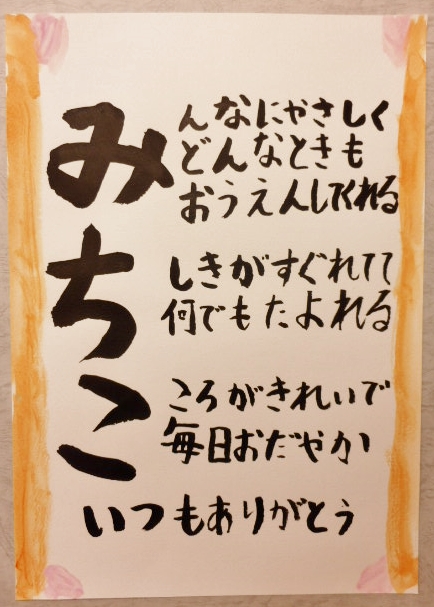 みんなにやさしく
どんなときも
おうえんしてくれる
ちしきがすぐれてて
何でもたよれる
こころがきれいで
毎日おだやか
いつもありがとう